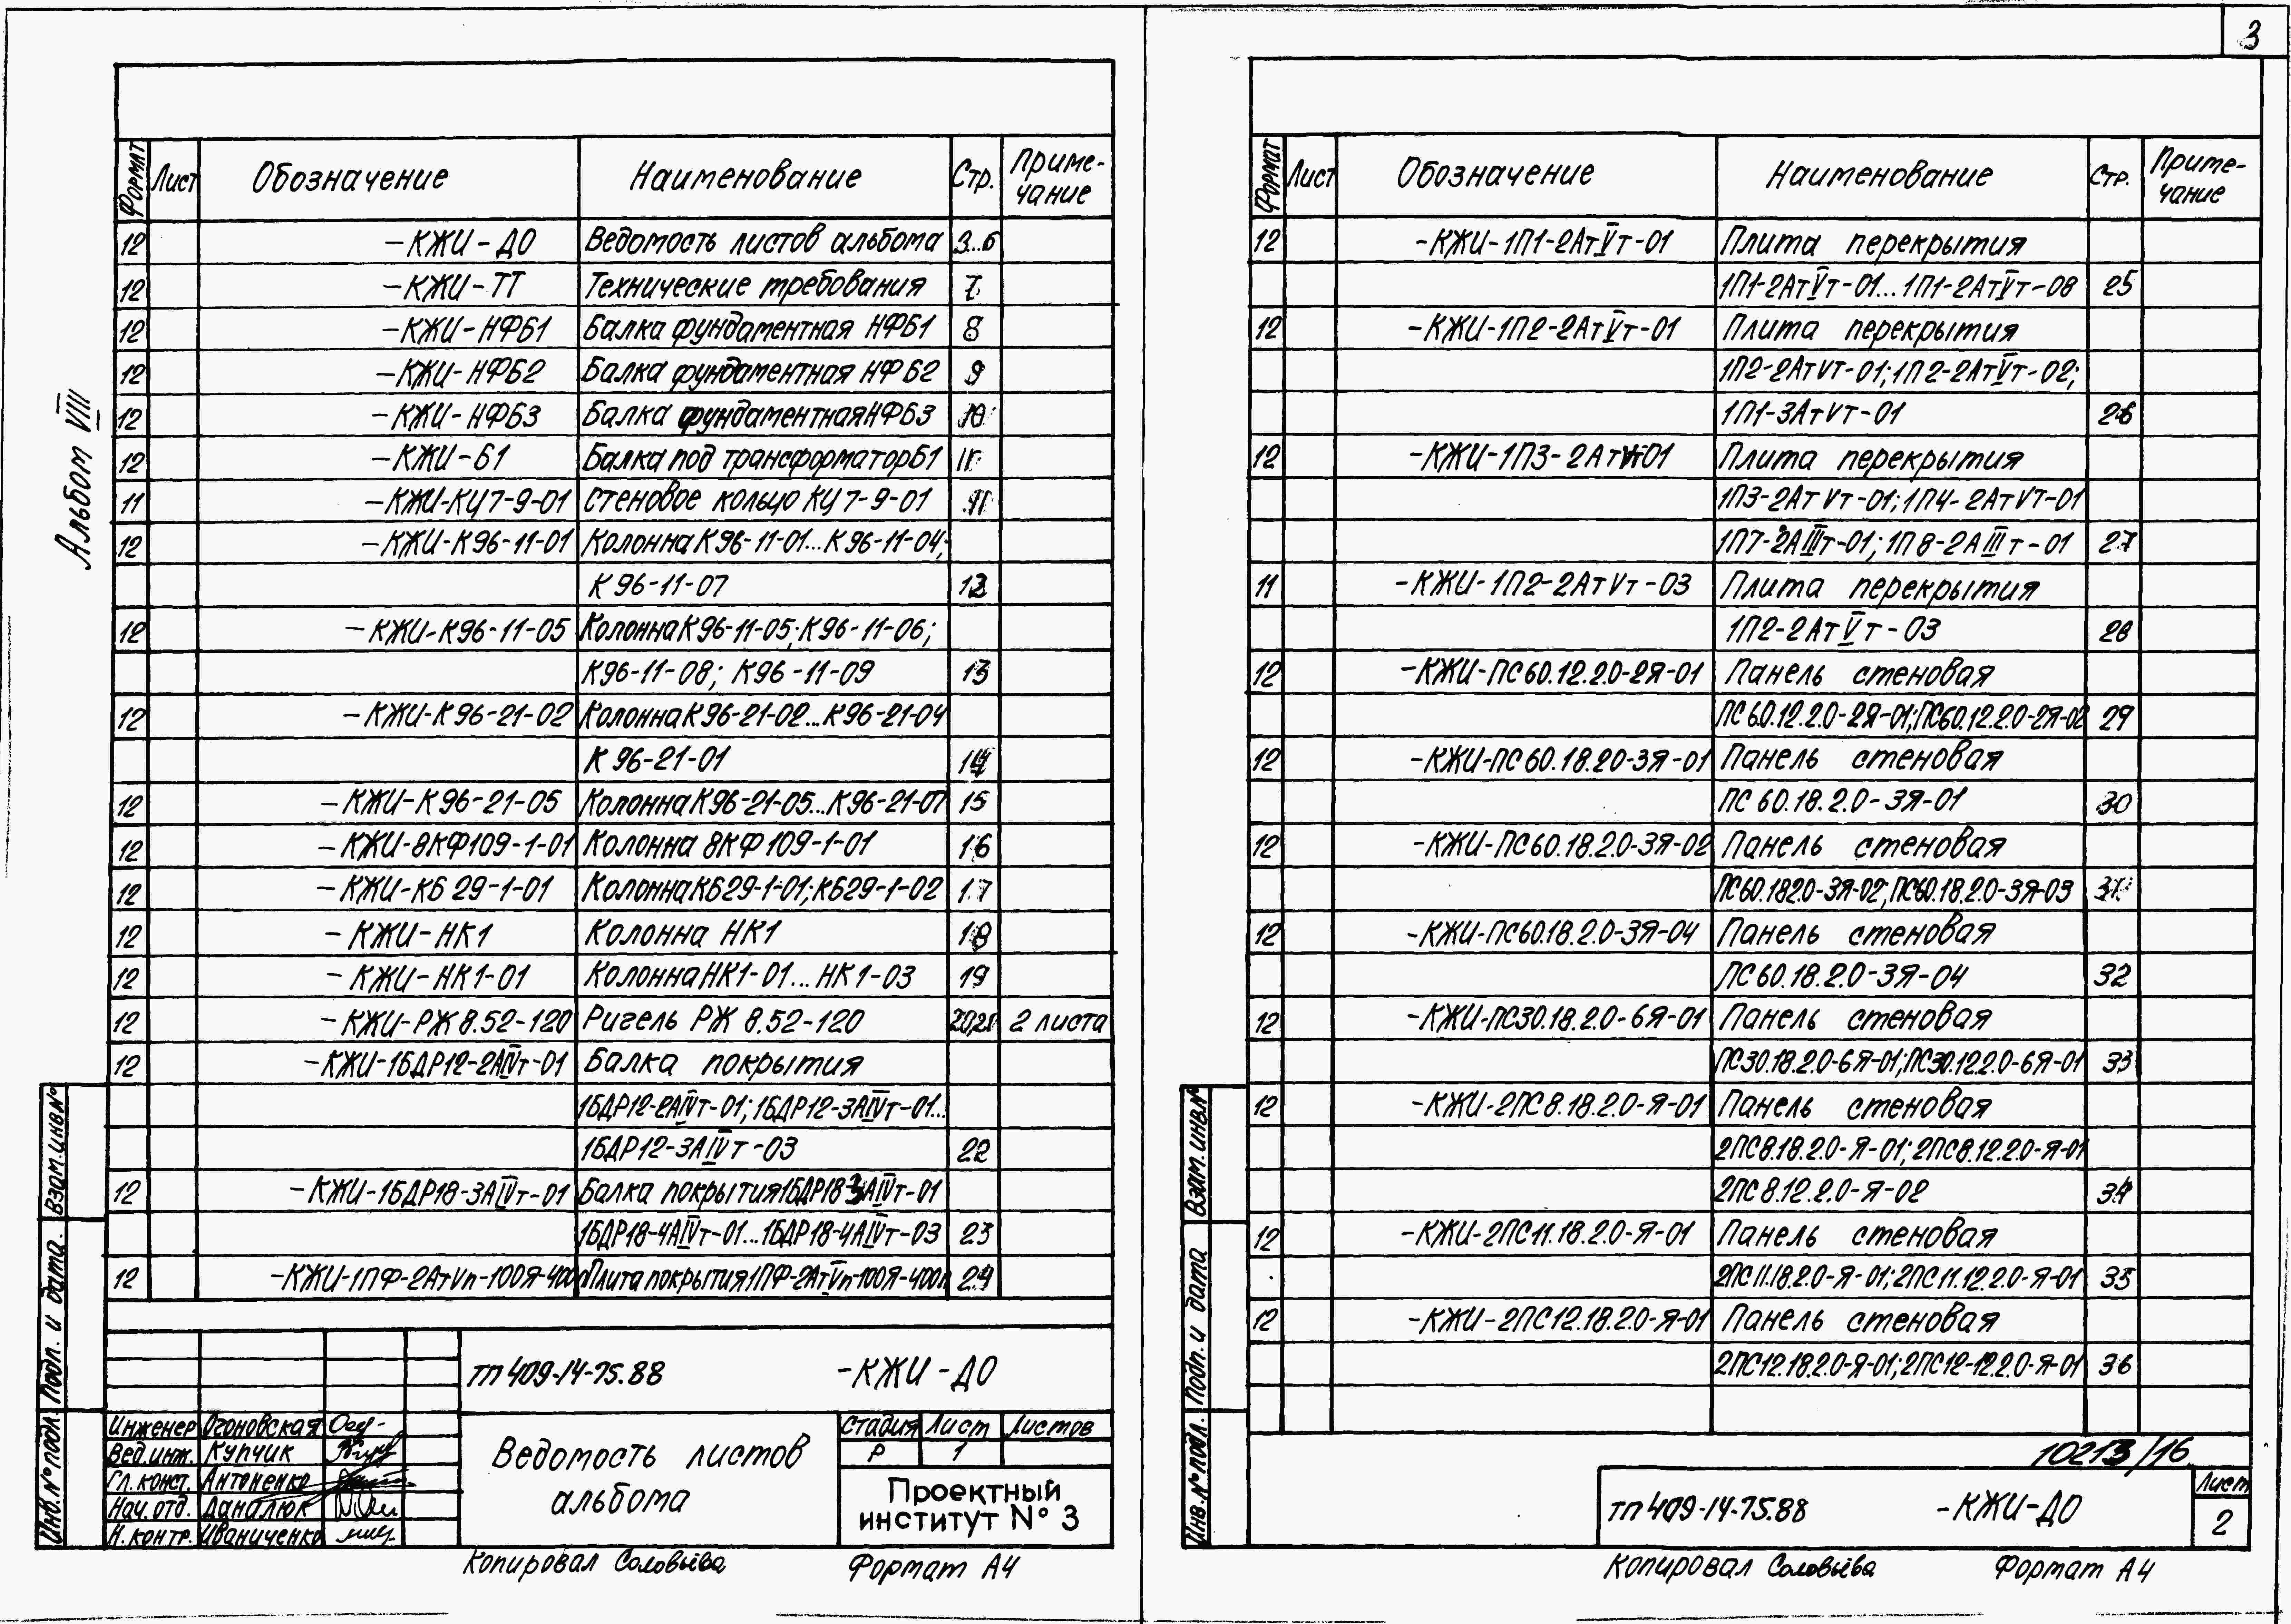 3
Альбом VIII
Формат Лист Обозначение Наименование Стр. Приме-чание
12 -КЖИ-ДО Ведомость листов альбома 3...6
12 -КЖИ-ТТ Технические требования 7
12 -КЖИ-НФБ1 Балка фундаментная НФБ1 8
12 -КЖИ-НФБ2 Балка фундаментная НФБ2 9
12 -КЖИ-НФБ3 Балка фундаментная НФБ3 10
12 -КЖИ-Б1 Балка под трансформатор Б1 11
11 -КЖИ-КЦ7-9-01 Стеновое кольцо КЦ7-9-01 11
12 -КЖИ-К96-11-01 Колонна К96-11-01...К96-11-04;
К96-11-07 12
12 -КЖИ-К96-11-05 Колонна К96-11-05; К96-11-06;
К96-11-08; К96-11-09 13
12 -КЖИ-К96-21-02 Колонна К96-21-02...К96-21-04
К96-21-01 14
12 -КЖИ-К96-21-05 Колонна К96-21-05...К96-21-07 15
12 -КЖИ-8КФ109-1-01 Колонна 8КФ109-1-01 16
12 -КЖИ-КБ29-1-01 Колонна КБ29-1-01; КБ29-1-02 17
12 -КЖИ-НК1 Колонна НК1 18
12 -КЖИ-НК1-01 Колонна НК1-01...НК1-03 19
12 -КЖИ-РЖ8.52-120 Ригель РЖ 8.52-120 20,21 2 листа
12 -КЖИ-1БДР12-2АIVт-01 Балка покрытия
1БДР12-2АIVт-01; 1БДР12-3АIVт-01...
1БДР12-3АIVт-03 22
12 -КЖИ-1БДР18-3АIVт-01 Балка покрытия 1БДР18-3АIVт-01
1БДР18-4АIVт-01...1БДР18-4АIVт-03 23
12 -КЖИ-1ПФ-2АтVп-100Я-400п Плита покрытия 1ПФ-2АтVп-100Я-400п 24
тп 409-14-75.88 -КЖИ-ДО
Инженер Огоновская
Вед.инж. Купчик
Гл.конст. Антоненко
Нач.отд. Данилюк
Н.контр. Иваниченко
Ведомость листов
альбома
Стадия Лист Листов
Р 1
Проектный
институт № 3
Взам.инв.№
Подп. и дата.
Инв.№ подл.
Копировал Соловьёва Формат А4
Формат Лист Обозначение Наименование Стр. Приме-чание
12 -КЖИ-1П1-2АтVт-01 Плита перекрытия
1П1-2АтVт-01...1П1-2АтVт-08 25
12 -КЖИ-1П2-2АтVт-01 Плита перекрытия
1П2-2АтVт-01; 1П2-2АтVт-02;
1П1-3АтVт-01 26
12 -КЖИ-1П3-2АтVт-01 Плита перекрытия
1П3-2АтVт-01; 1П4-2АтVт-01
1П7-2АIIIт-01; 1П8-2АIIIт-01 27
11 -КЖИ-1П2-2АтVт-03 Плита перекрытия
1П2-2АтVт-03 28
12 -КЖИ-ПС60.12.2.0-2Я-01 Панель стеновая
ПС60.12.2.0-2Я-01; ПС60.12.2.0-2Я-02 29
12 -КЖИ-ПС60.18.2.0-3Я-01 Панель стеновая
ПС60.18.2.0-3Я-01 30
12 -КЖИ-ПС60.18.2.0-3Я-02 Панель стеновая
ПС60.18.2.0-3Я-02; ПС60.18.2.0-3Я-03 31
12 -КЖИ-ПС60.18.2.0-3Я-04 Панель стеновая
ПС60.18.2.0-3Я-04 32
12 -КЖИ-ПС30.18.2.0-6Я-01 Панель стеновая
ПС30.18.2.0-6Я-01; ПС30.12.2.0-6Я-01 33
12 -КЖИ-2ПС8.18.2.0-Я-01 Панель стеновая
2ПС8.18.2.0-Я-01; 2ПС8.12.2.0-Я-01
2ПС8.12.2.0-Я-02 34
12 -КЖИ-2ПС11.18.2.0-Я-01 Панель стеновая
2ПС11.18.2.0-Я-01; 2ПС11.12.2.0-Я-01 35
12 -КЖИ-2ПС12.18.2.0-Я-01 Панель стеновая
2ПС12.18.2.0-Я-01; 2ПС12-12.2.0-Я-01 36
10213/16
тп 409-14-75.88 -КЖИ-ДО
Лист
2
Взам.инв.№
Подп. и дата
Инв.№ подл.
Копировал Соловьёва Формат А4